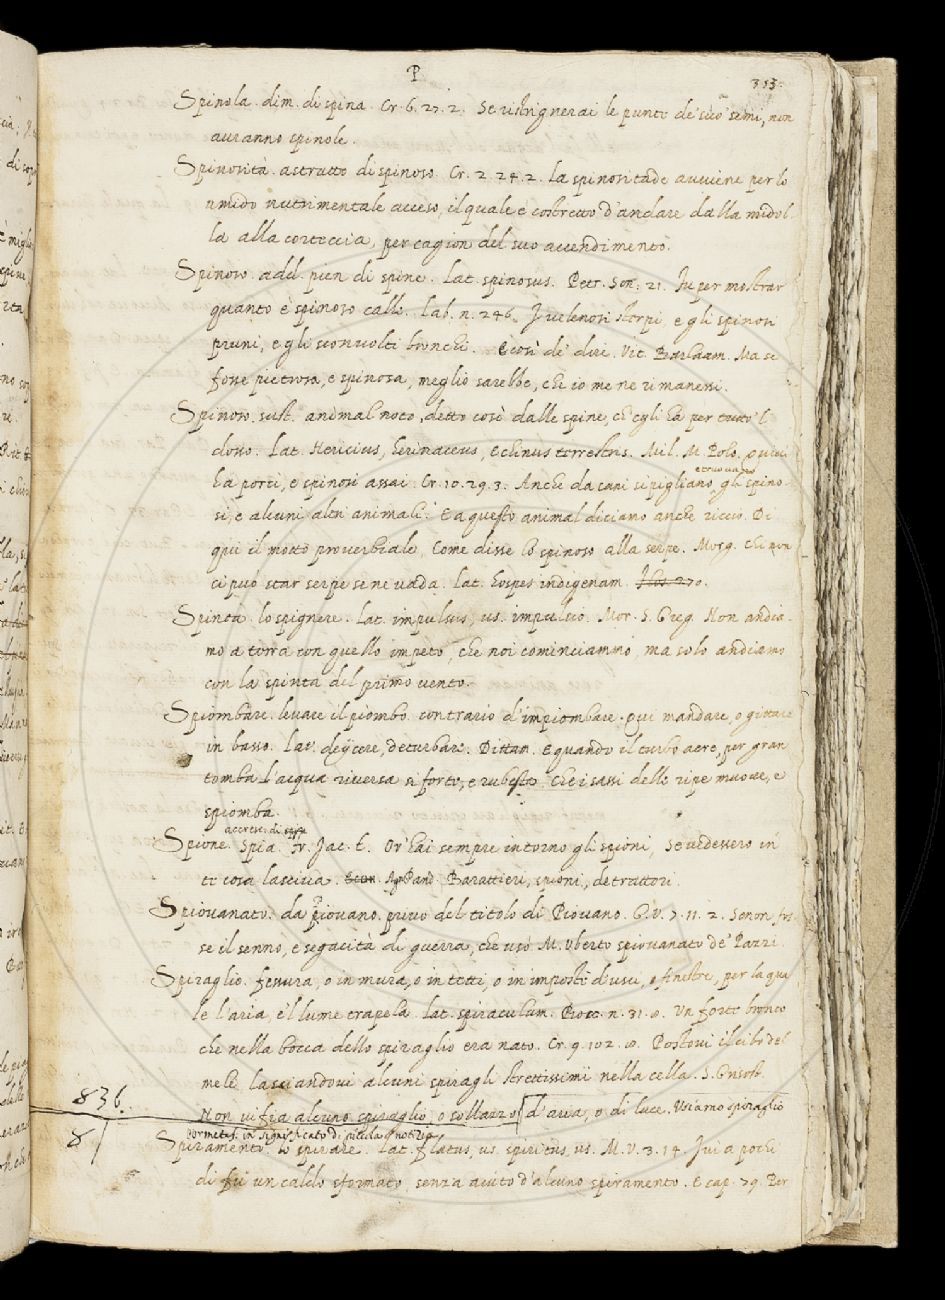 P
313.
Spinola. dim. di spina. Cr. 6. 27. 2. Se ristrignerai le punte de' suo' semi, non
auranno spinole.
Spinosità. astratto di spinoso. Cr. 2. 24. 2. La spinositade auuiene per lo
umido nutrimentale acceso, il quale è costretto d'andare dalla midol-
la alla corteccia, per cagion del suo accendimento.
Spinoso. add. pien di spine. Lat. spinosus. Petr. Son. 21. Ju per mostrar
quanto è spinoso calle. Lab. n. 246. J uelenosi sterpi, e gli spinosi
pruni, e gli sconuolti bronchi. E così de' dire. Vit. Barlaam. Ma se
fosse pietrosa, e spinosa, meglio sarebbe, che io me ne rimanessi.
Spinoso. sust. animal noto, detto così dalle spine, ch'egli ha per tutto 'l
dosso. Lat. Hericius, herinaceus, echinus terrestris. Mil. M. Polo. quiui
etruouano
ha porci, e spinosi assai. Cr. 10. 29. 3. Anche da cani si pigliano gli spino-
si, e alcuni altri animali. E a questo animal diciamo anche riccio. Di
qui il motto prouerbiale, Come disse lo spinoso alla serpe. Morg. Chi non
ci può star serpe se ne uada. Lat. hospes indigenam.
Spinta. lo spignere. Lat. impulsus, us. impulsio. Mor. S. Greg. Non andia-
mo a terra con quello impeto, che noi cominciammo, ma solo andiamo
con la spinta del primo uento.
Spiombare. leuare il piombo. contrario d'impiombare. qui mandare, o gittare
in basso. Lat. deijcere, deturbare. Dittam. E quando il turbo aere, per gran
tomba l'acqua riuersa si forte, e rubesta Che i sassi delle ripe muoue, e
spiomba.
accresc. di
Spione. Spia. Fr. Jac. t. Or' hai sempre intorno gli spioni, Se uedessero in
te cosa lasciua. Pand. Barattieri, spioni, detrattori.
Spiouanato. da Piouano. priuo del titolo di Piouano. G. V. 7. 11. 2. Se non fos-
se il senno, e sagacità di guerra, che usò M. Vberto spiouanato de' Pazzi.
Spiraglio. fessura, o in mura, o in tetti, o in imposte d'usci, o finestre, per la qua-
le l'aria, e 'l lume trapela. Lat. spiraculum. Bocc. n. 31. 6. Vn forte bronco
che nella bocca dello spiraglio era nato. Cr. 9. 102. Postoui il cibo del
mele lasciandoui alcuni spiragli strettissimi nella cella. S. Grisost.
836.
Non ui sia alcuno spiraglio, o sollazzo d'aria, o di luce. Vsiamo spiraglio
per metaf. in significato di piccola notizia
Spiramento. lo spirare. Lat. flatus, us. spiritus, us. M. V. 3. 14. Jui a pochi
di fu un caldo sformato senza aiuto d'alcuno spiramento. E cap. 79. Per